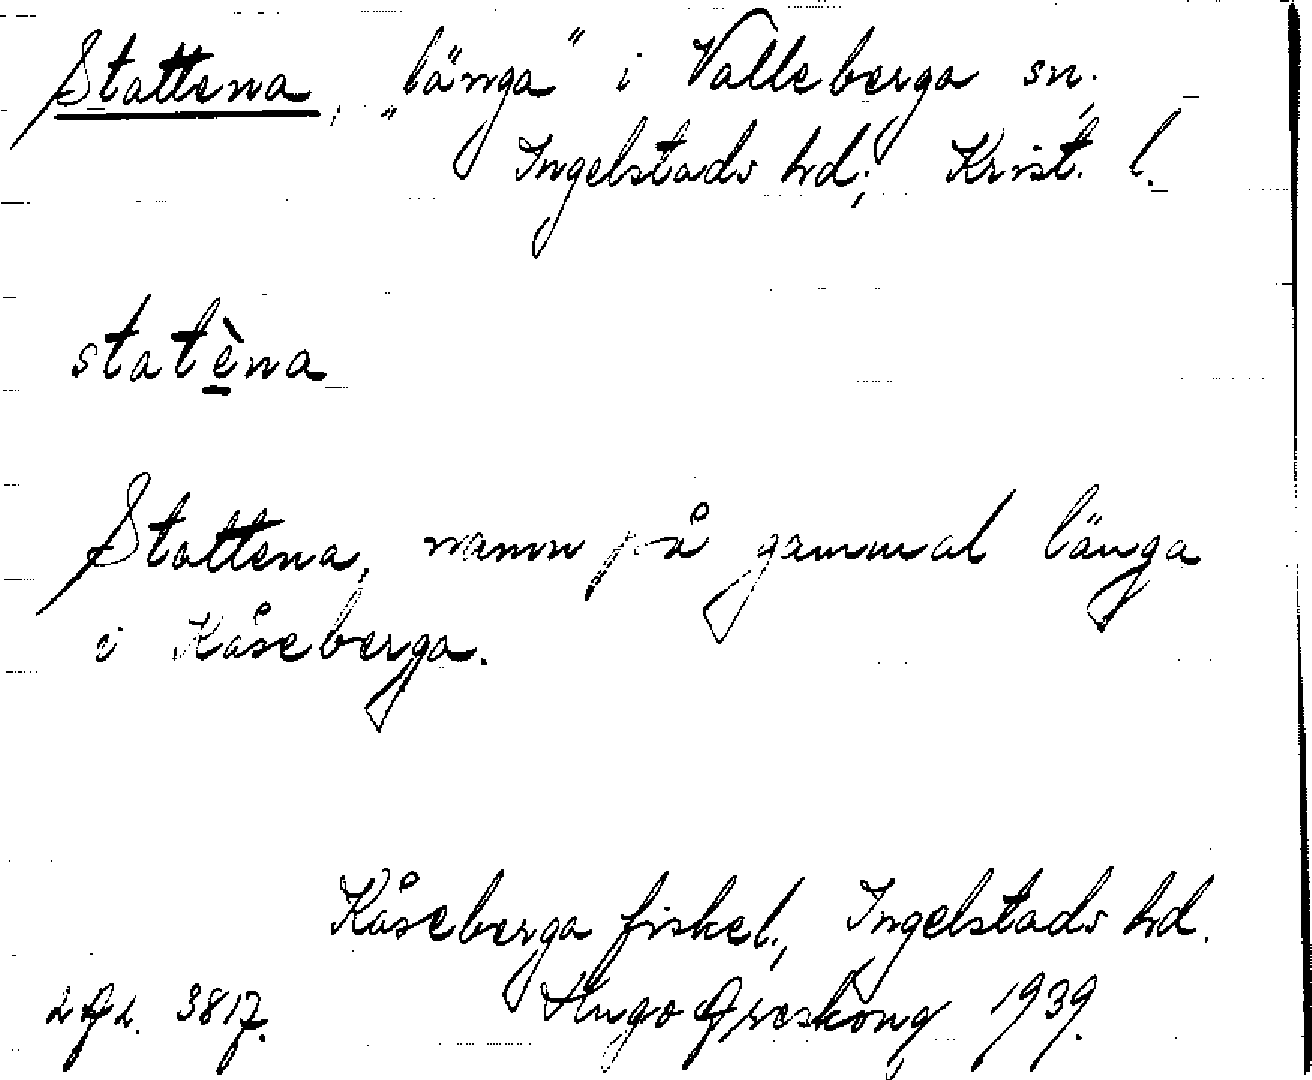 Stattena, „länga" i Valleberga sn,
Ingelstads hd; Krist. l.
statèna
Stattena, namn på gammal länga
i Kåseberga.
Kåseberga fiskel., Ingelstads hd.
3817. Hugo Areskoug 1939.